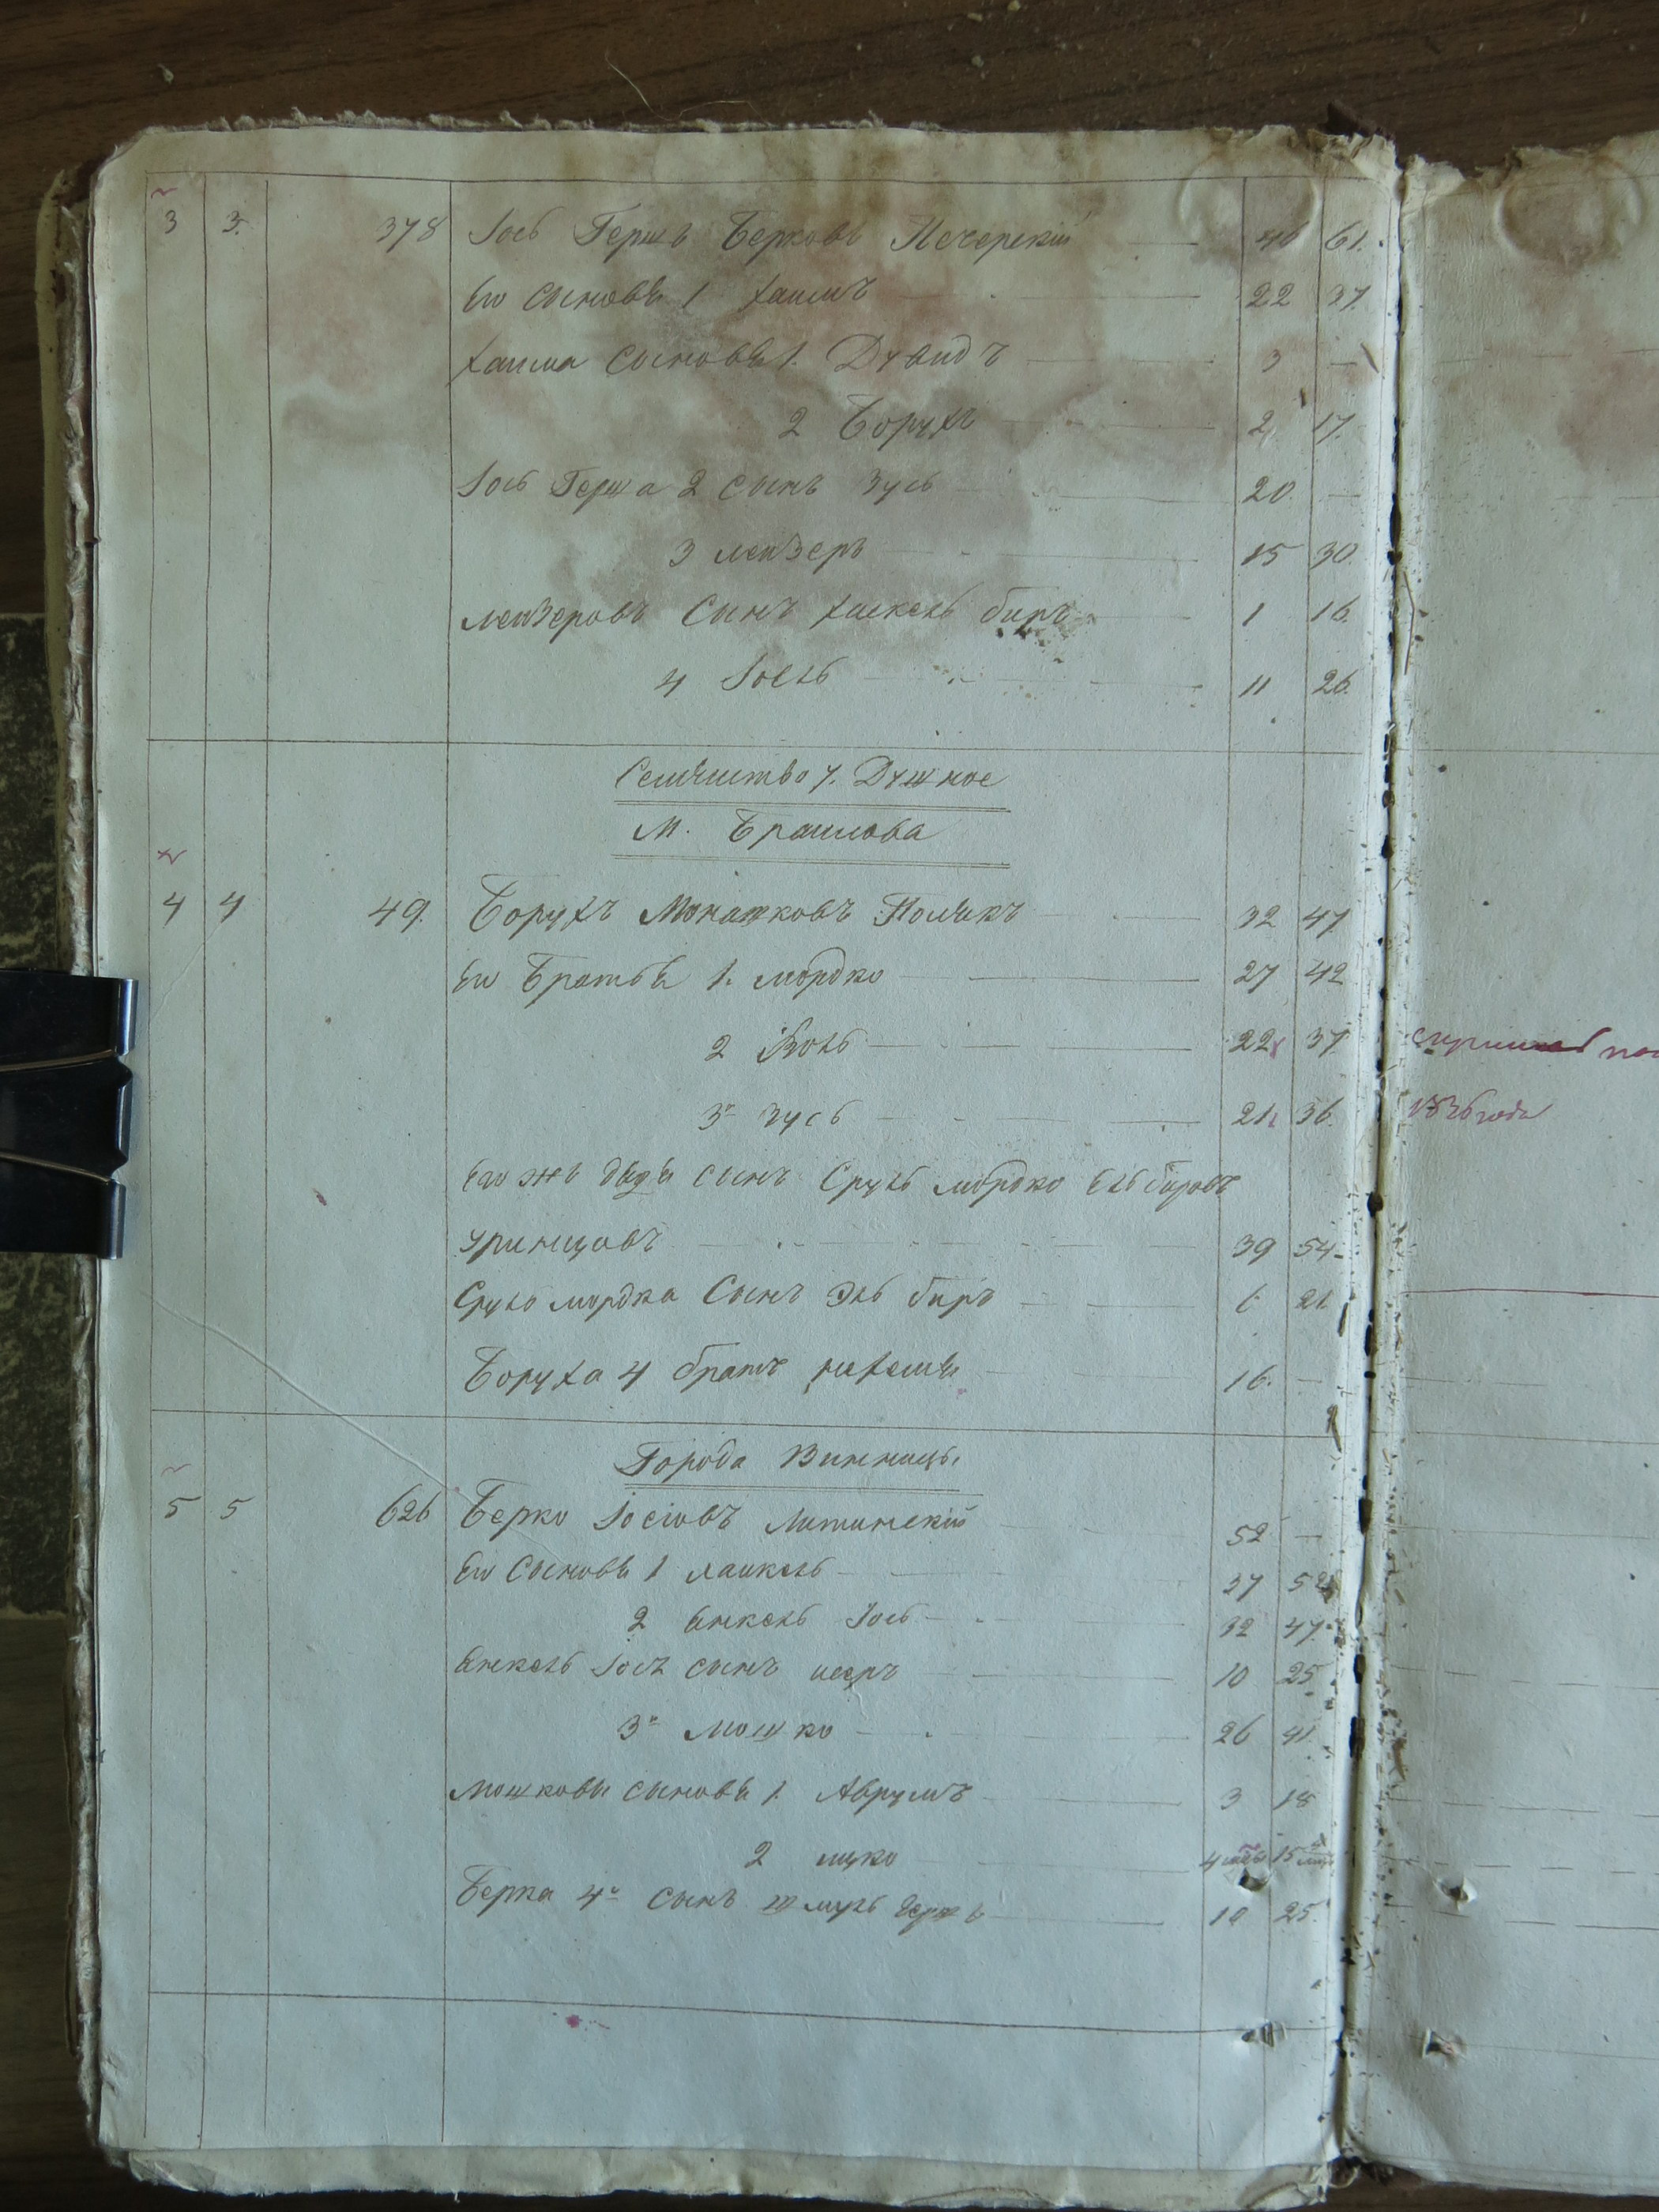 3 3. 378 Iось Гершъ Берковъ Печерскій 46 61.
Его сыновья 1 Хаимъ 22 37.
Хаима сыновья 1. Дувидъ 3 —
2 Борухъ 2 17.
Iось Герша 2 сынъ Зусь 20. —
3 Лейзеръ 15 30.
Лейзеровъ сынъ Хаскель биръ 1 16.
4 Iосль 11 26.
Семейство 7. Душное
М. Браилова
4 4 49. Борухъ Монашковъ Полякъ 32 47
Его братья 1. Мордко 27 42
2 Волъ 22 37.
3й Зусь 21 36.
Его же дяди сынъ Сруль Мордко Ель бировъ
Уринцовъ 39 54
Сруль Мордка сынъ Эль биръ 6 21
Боруха 4 братъ Нахемья 16. —
Города Винницы
5 5 626 Берко Iосіовъ Литинскій 52 —
Его сыновья 1 Лейкель 37 52
2 Янкель Iось 32 47.
Янкель Iосъ сынъ Исеръ 10 25
3й Мошко 26 41.
Мошковы сыновья 1. Аврумъ 3 18
2 Ицко 4 мѣс 15
Берка 4й сынъ Шмуль Гершъ 10 25.
1836 года